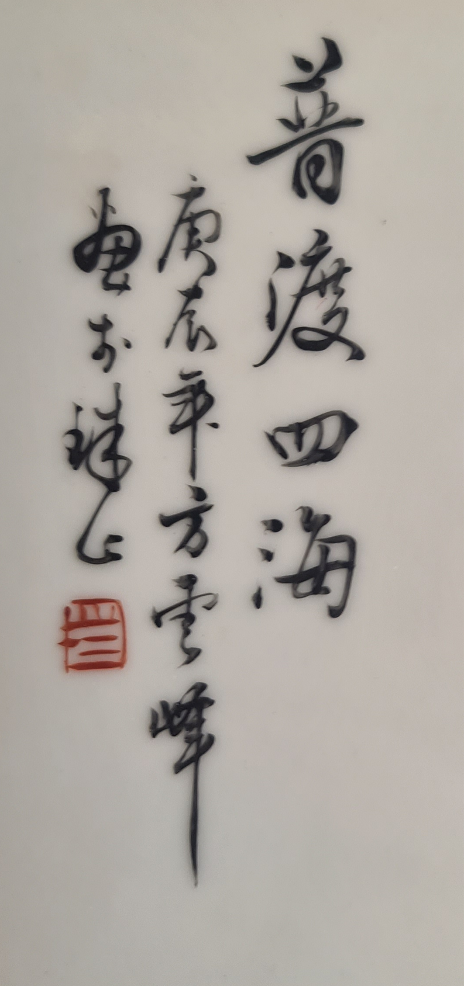 普渡四海
庚辰年方雲峰
畫於珠山